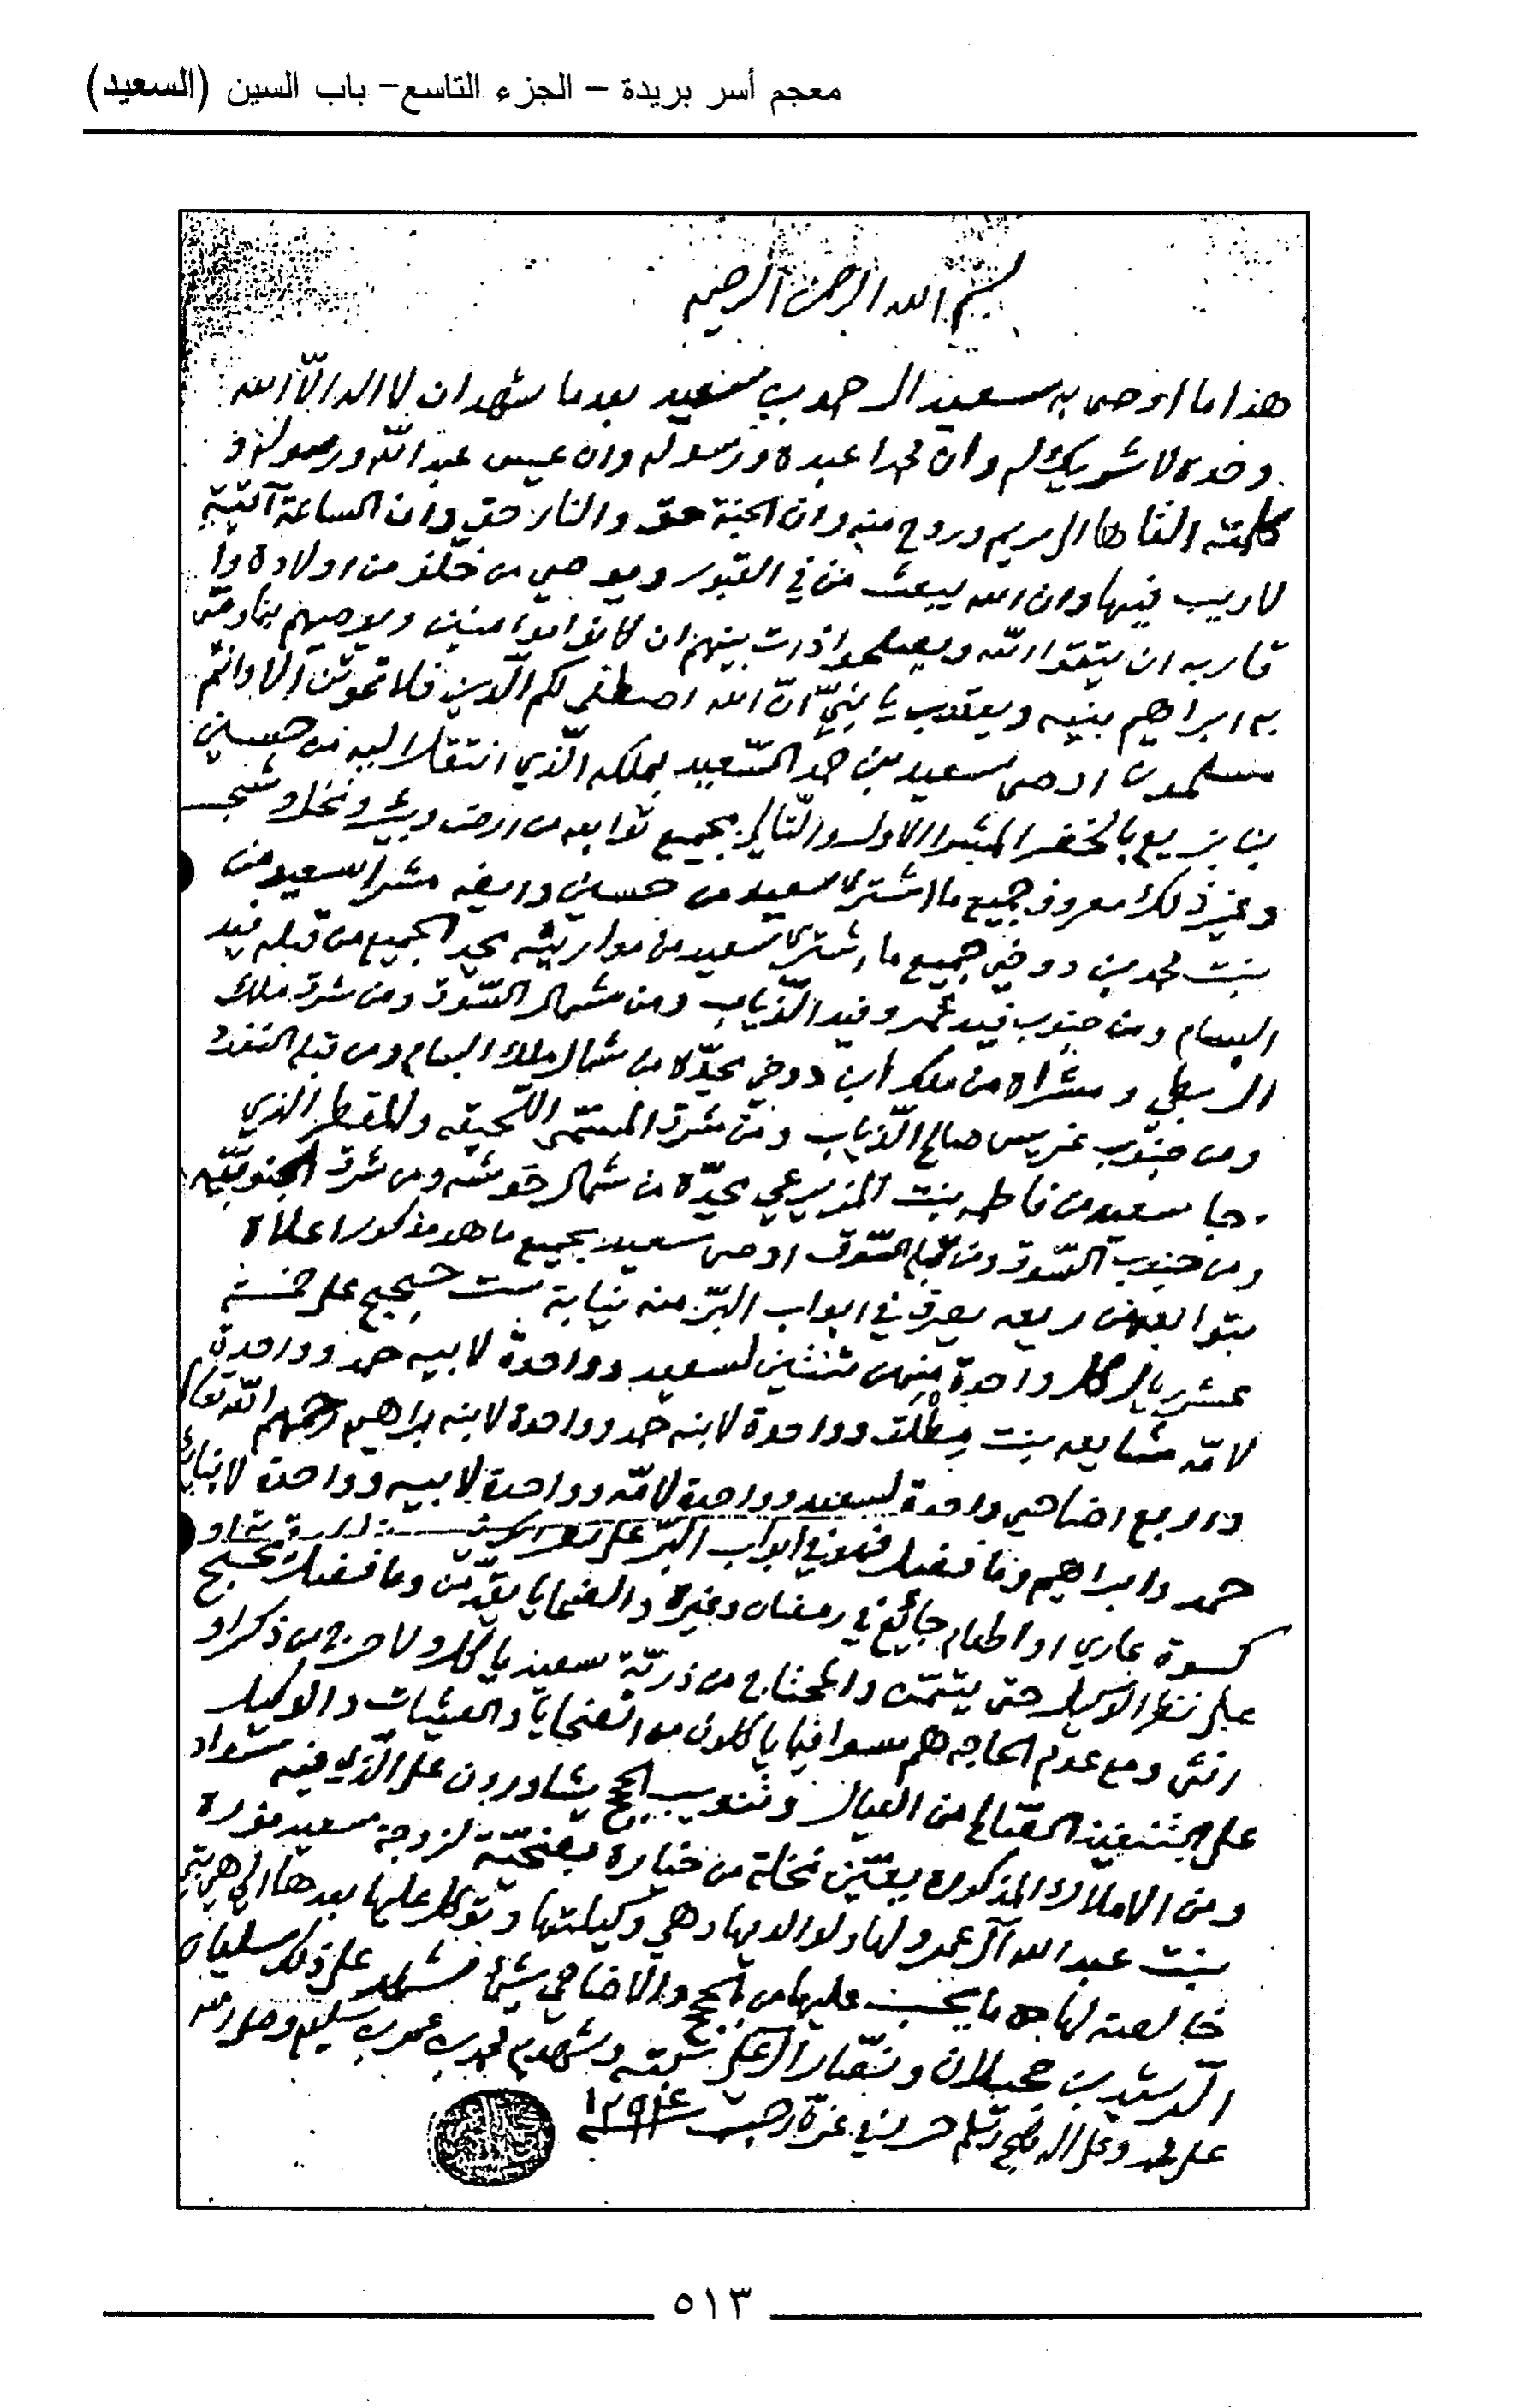 معجم أسر بريدة – الجزء التاسع– باب السين (السعيد)
بسم الله الرحمن الرحيم
هذا ما اوصى به سعيد الحمد بعدما شهد ان لا اله الا الله
وحده لا شريك له وان محمدا عبده ورسوله وان عيسى عبد الله ورسوله و
كلمته القاها الى مريم وروح منه وان الجنة حق والنار حق وان الساعة آتية
لا ريب فيها وان الله يبعث من في القبور ويوصي من خلف من اولاده وا
قاربه ان يتقوا الله ويصلحوا ذات بينهم ان كانوا مؤمنين ويوصيهم بما وصى
به ابراهيم بنيه ويعقوب يا بني ان الله اصطفى لكم الدين فلا تموتن الا وانتم
مسلمون اوصى سعيد بن حمد السعيد بملكه الذي انتقل اليه من حسين
بن بزيع بالخضر المشرا الاول والتالي بجميع توابعه من ارض وبير ونخل وشجر
وغير ذلك معروف جميع ما اشترى سعيد من حسين وايضا مشرا سعيد من
بنت محمد بن دوخي جميع ما اشترى سعيد من مواريثه يحد الجميع من قبله قيد
البسام ومن جنوب قيد عمر وقيد الذياب ومن شمال السوق ومن شرق ملك
الربطي ومشراه من ملك ابن دوخي يحده من شمال ملك البسام ومن قبله النفود
ومن جنوب غريس صالح الذياب ومن شرق المستمى اللحيقه والمقطر الذي
جا سعيد من فاطمه بنت المزيرعي يحده من شمال حوشه ومن شرق الجنوبيه
ومن جنوب السوق ومن قبله السوق اوصى سعيد بجميع ما هو مذكور اعلاه
بتوابعه من ريعه يصرف في ابواب البر منه نيابة ست حجج على خمسة
عشر ريال كل واحدة منهن ثنتين لسعيد وواحدة لابيه حمد وواحدة
لامه مشايعه بنت مطلق وواحدة لابنه حمد وواحدة لابنه براهيم رحمهم الله تعالى
واربع اضاحي واحدة لسعيد وواحدة لامه وواحدة لابيه وواحدة لابنائه
حمد وابراهيم وما فضل فهو في ابواب البر على نظر الوكيل
كسوة عاري او اطعام جائع في رمضان وغيره والضحايا يقدمن وما فضل تحجج
على نظر الوكيل حتى يتمن والمحتاج من ذرية سعيد ياكل ولا حرج من ذكر او
انثى ومع عدم الحاجه هم سوا فيها ياكلون من الضحايا والعشيات والوكيل
على تنفيذه الصالح من العيال وتنويب الحج يشاورون على الذي فيه سداد
ومن الاملاك المذكوره يعين نخلة من خياره بضحية لزوجة سعيد منوره
بنت عبد الله آل عمر ولها ولوالديها وهي وكيلتها وتوكل عليها بعدها الى هي تبي
خالصه لها ما يحسب عليها من الحج والاضاحي شي شهد على ذلك سليمان
الرشيد بن حجيلان ونصار آل علي شهد وشهد به محمد بن عمر بن سليم وصلى الله
على محمد وعلى اله وصحبه وسلم حرر في غرة رجب سنة ١٢٩٤
٥١٣